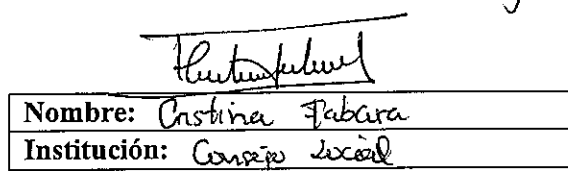 Nombre: Cristina Tabara
Institución: Consejo Social